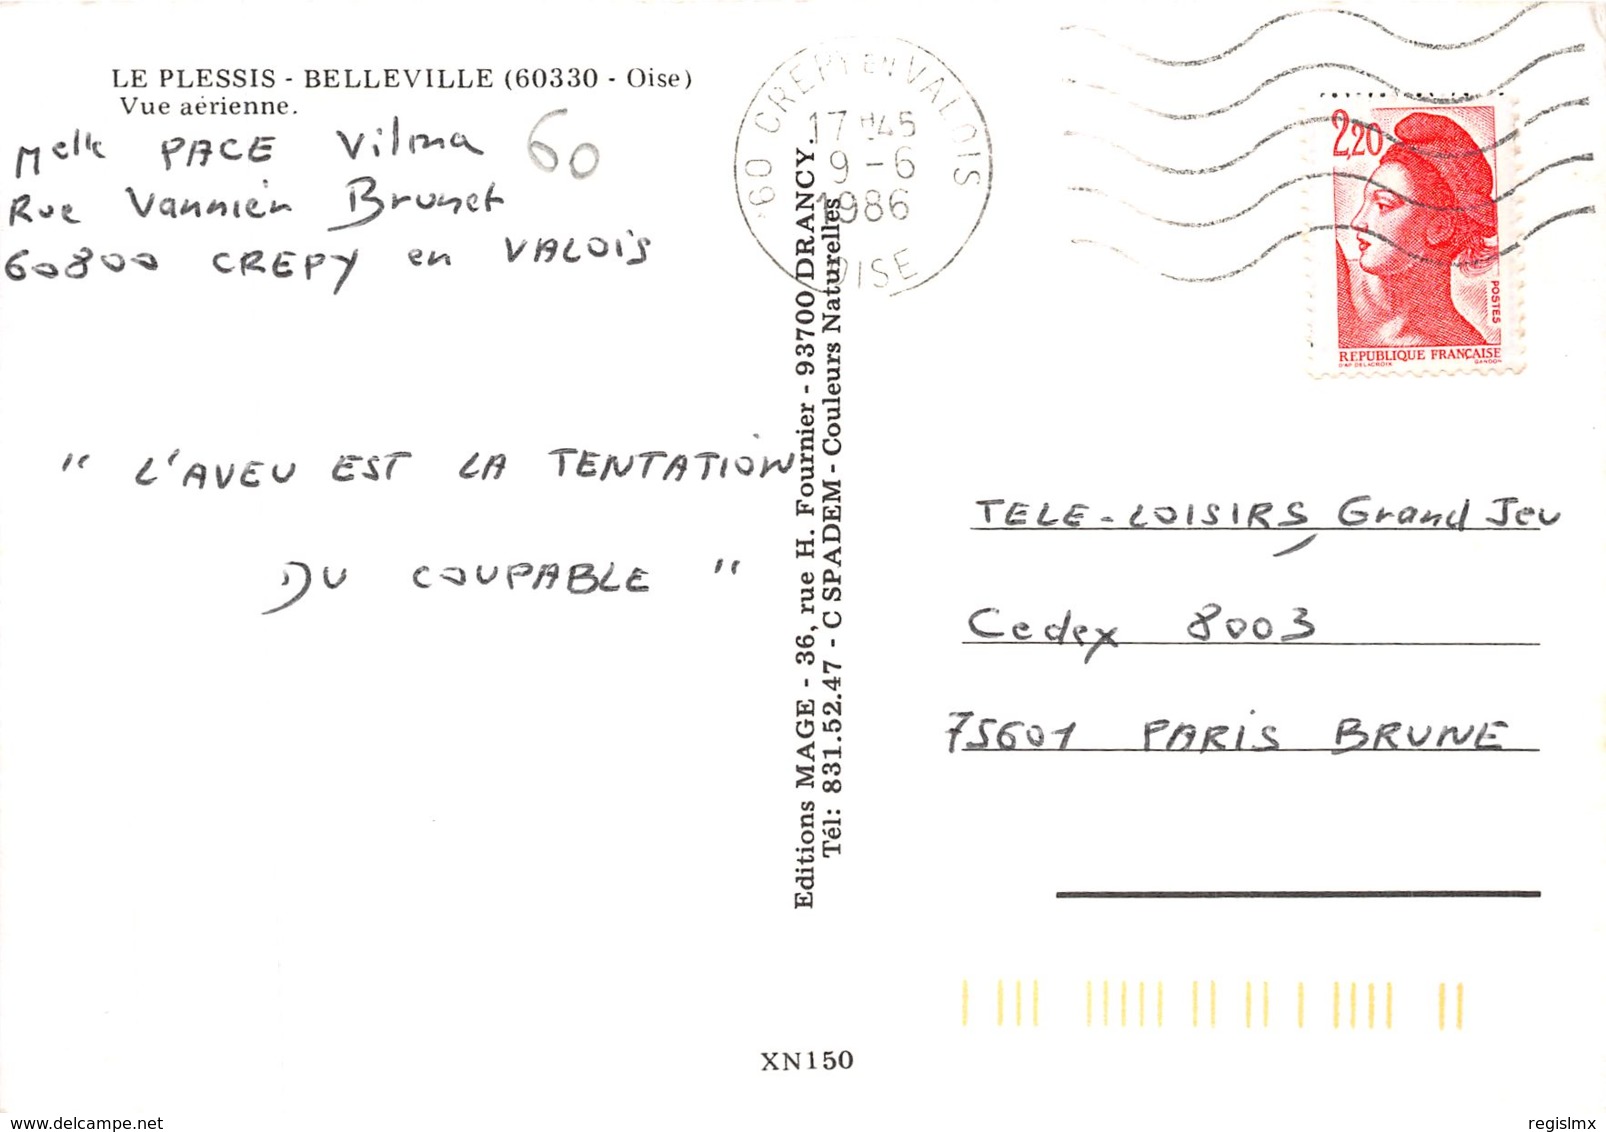 LE PLESSIS - BELLEVILLE (60330 - Oise)
Vue aérienne.
Melle PACE Vilma 60
Rue Vannier Brunet
60800 CREPY en VALOIS
" L'AVEU EST LA TENTATION
DU COUPABLE "
Editions MAGE - 36, rue H. Fournier - 93700 DRANCY.
Tél: 831.52.47 - C SPADEM - Couleurs Naturelles
60 CREPY EN VALOIS
17 H45
9 - 6
1986
OISE
2,20
POSTES
REPUBLIQUE FRANÇAISE
D'AP. DELACROIX GANDON
TELE-LOISIRS, Grand Jeu
Cedex 8003
75601 PARIS BRUNE
XN150
delcampe.net
regislmx